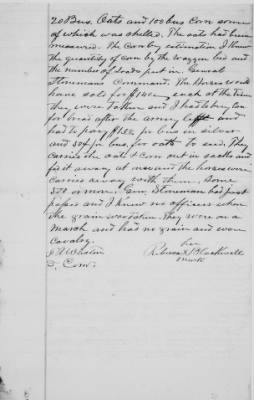 20 Bus. Oats and 100 bus Corn some
of which was shelled. The oats had been
measured. The Corn by estimation. I knew
the quantity of corn by the waggon bed and
the number of loads put in. General
Stonemans Command. The Horses would
have sold for $140 each at the time
they were taken and I had to buy corn
for bread after the army left and
had to pay $1 pr bus in silver
and 50¢ pr bus, for oats to seed. They
carried the oats & corn out in sacks and
fed it away at once and the horses were
carried away with them. Some
300 or more. Gen. Stoneman had just
passed and I knew no officers when
the grain was taken. They were on a
march and had no grain and were
Cavalry.
her
Rebecca Blackwell
mark
Com.